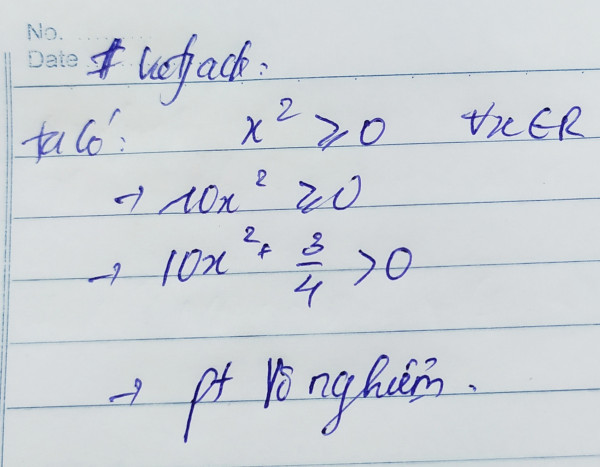 No.
Date
ta có: x² ⩾ 0 ∀x ∈ R
→ 10x² ⩾ 0
→ 10x² + 3/4 > 0
→ pt Vô nghiệm.